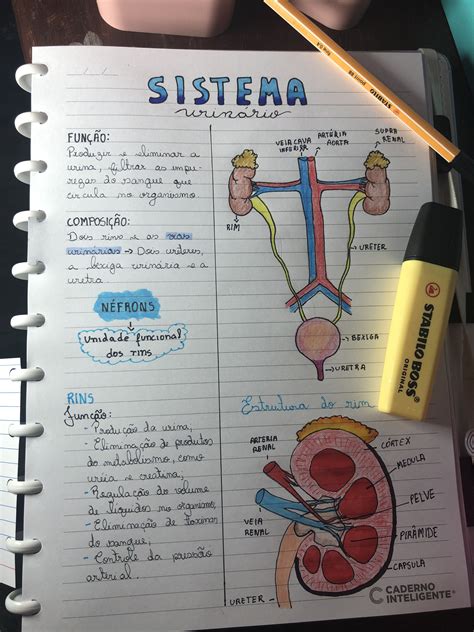 SISTEMA
urinário
FUNÇÃO:
Produzir e eliminar a
urina, filtrar as impu-
rezas do sangue que
circula no organismo.
COMPOSIÇÃO:
Dois rins e as vias
urinárias → Dois ureteres,
a bexiga urinária e a
uretra.
NÉFRONS
Unidade funcional
dos rins
RINS
Função:
- Produção da urina,
- Eliminação de produtos
do metabolismo, como
uréia e creatina,
- Regulação do volume
de líquidos no organismo,
- Eliminação de toxinas
do sangue,
- Controle da pressão
arterial.
VEIA CAVA
INFERIOR
ARTÉRIA
AORTA
SUPRA
RENAL
RIM
URÉTER
BEXIGA
URETRA
Estrutura do rim
ARTERIA
RENAL
CÓRTEX
MEDULA
PELVE
VEIA
RENAL
PIRÂMIDE
CAPSULA
URETER
CADERNO
INTELIGENTE®
STABILO
STABILO BOSS
ORIGINAL